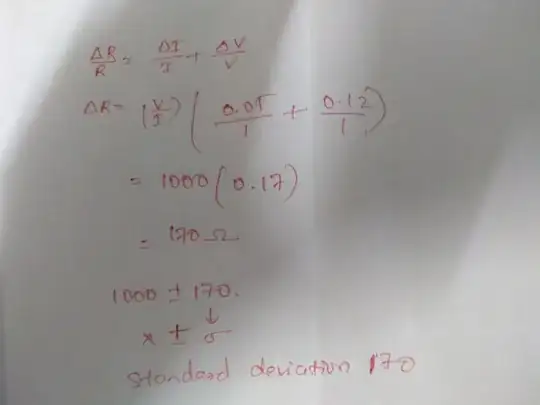 ΔR/R = ΔI/I + ΔV/V
ΔR = (V/I) ( 0.05/1 + 0.12/1 )
= 1000 ( 0.17 )
= 170 Ω
1000 ± 170.
↓
x ± σ
standard deviation 170